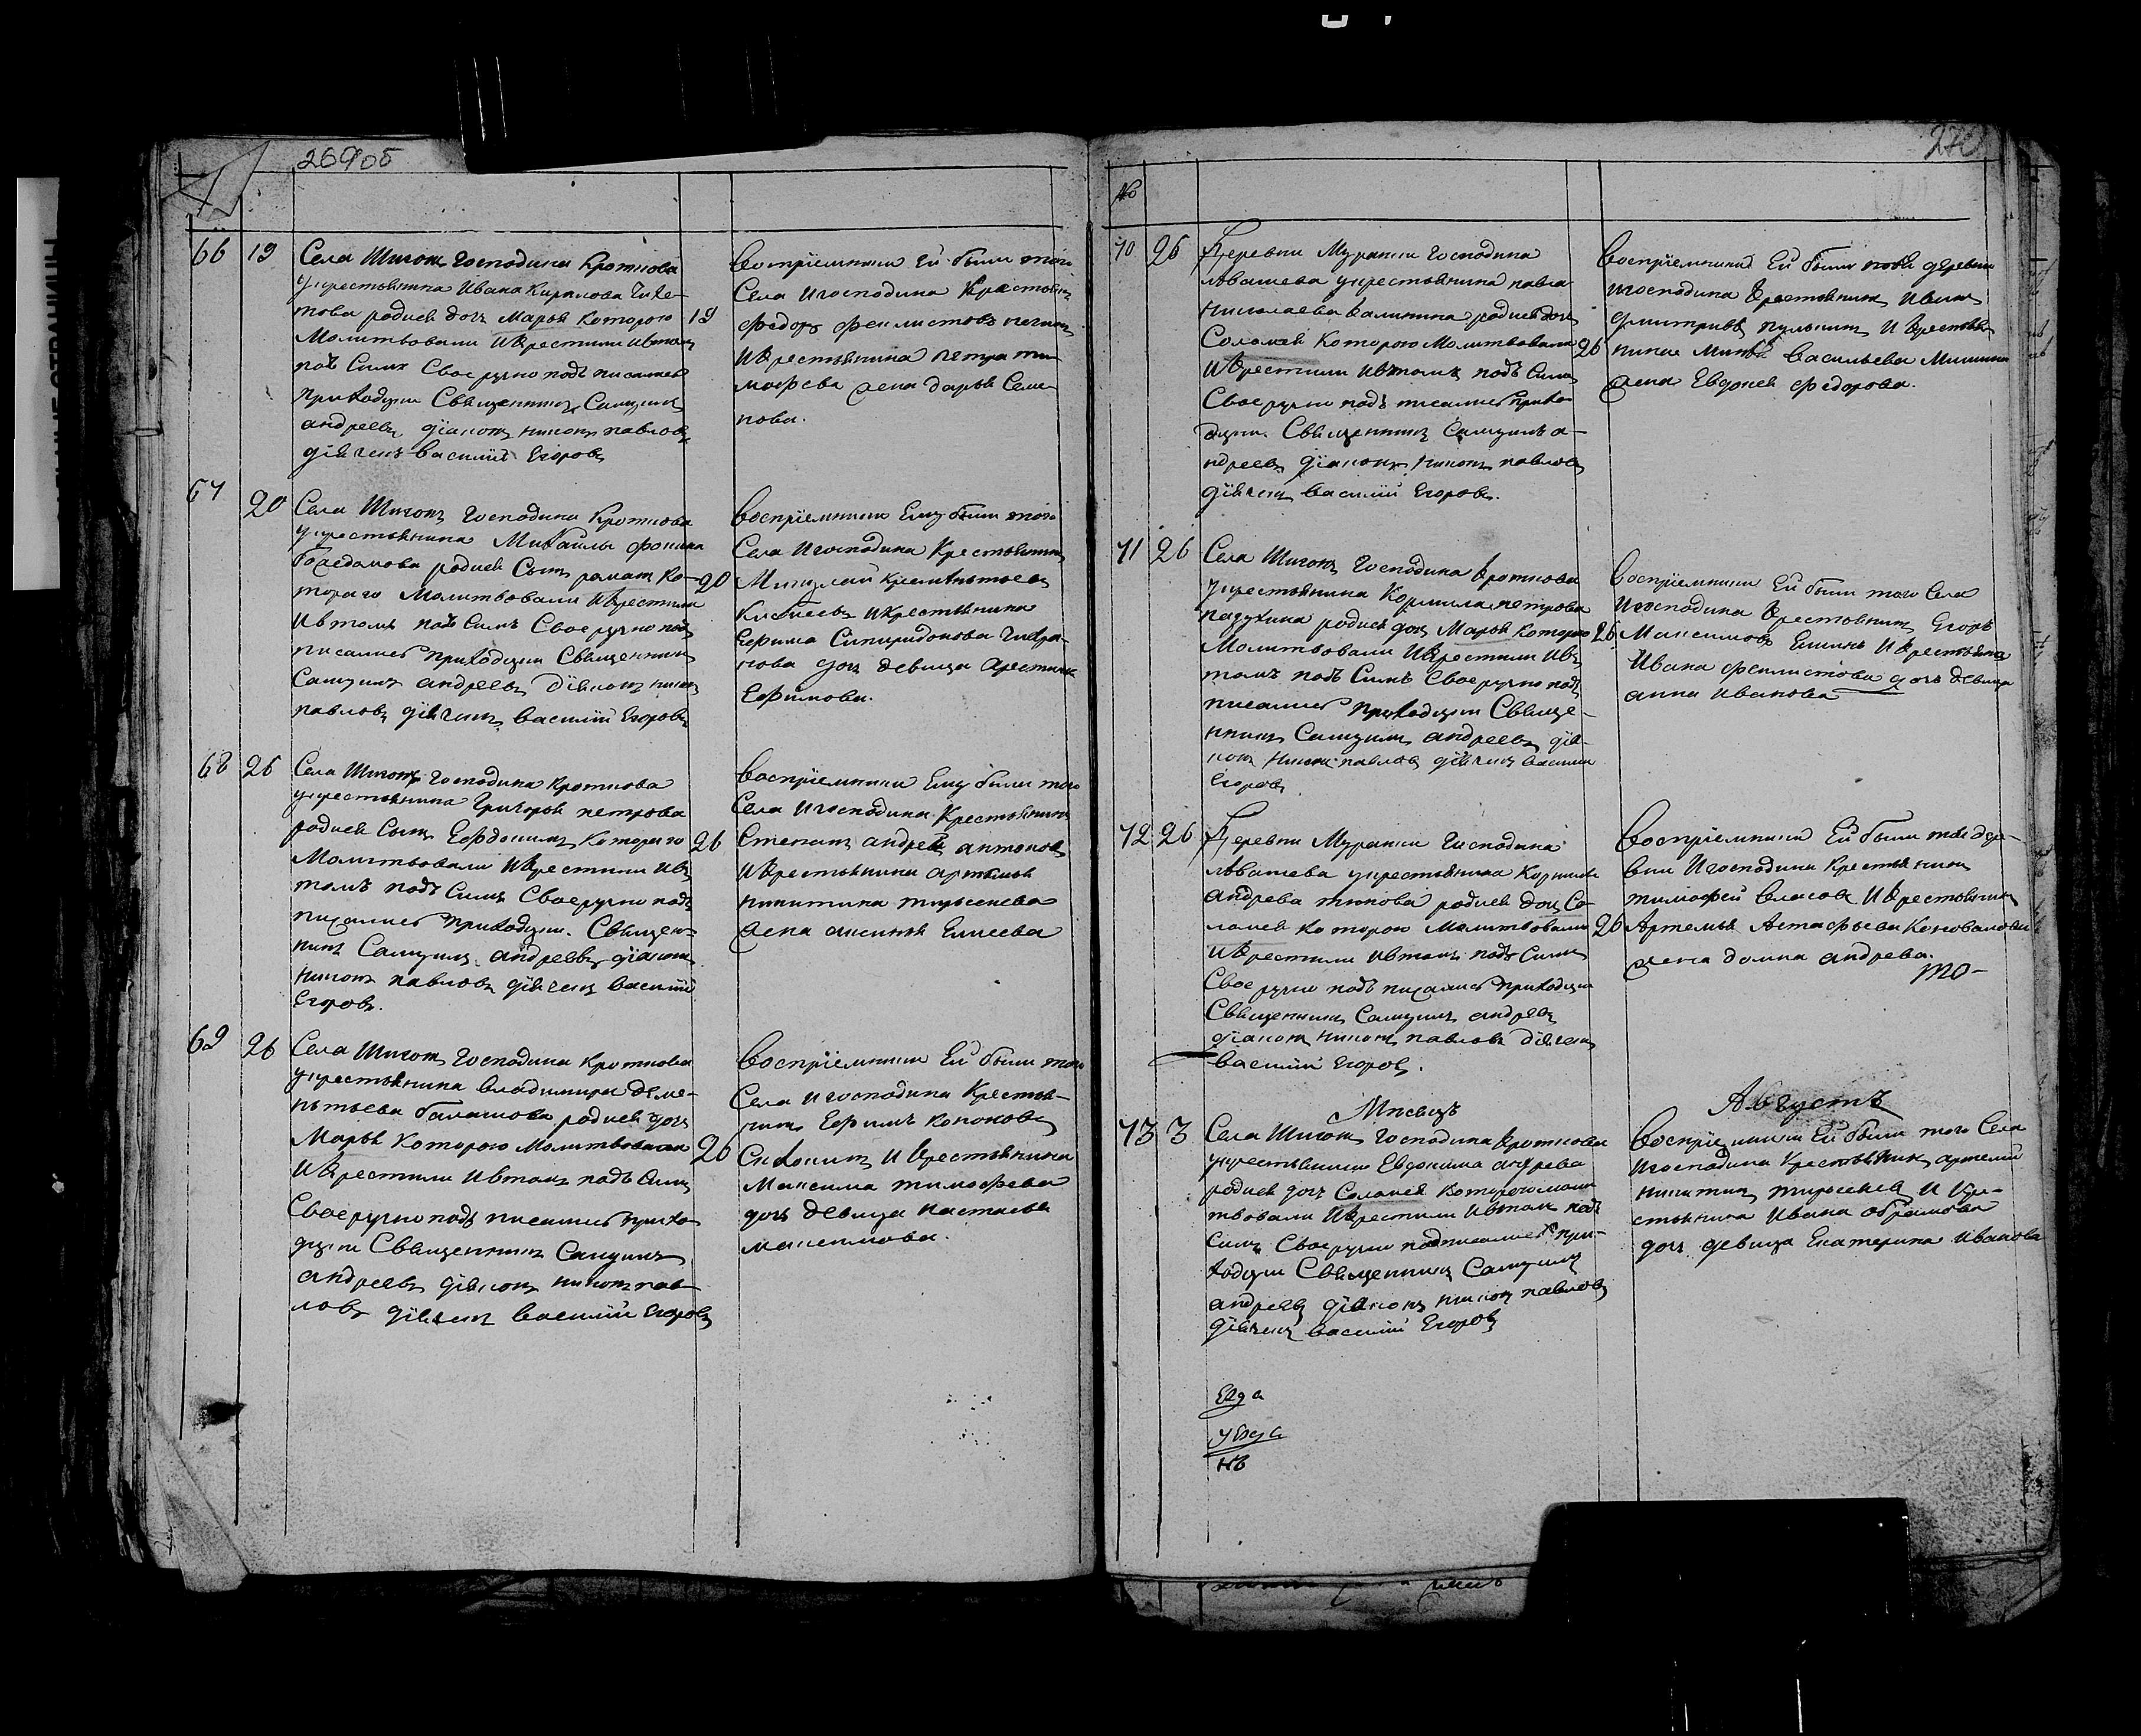 269об
66 19 Села Шигонъ Господина Кроткова
укрестьянина Ивана Кирилова
родися дочь Марья которою 19
Молитвовали и крестили ивтомъ
подъ Симъ Своеручно подъ писались
приходцкии Священникъ Самуилъ
андреевъ дiаконъ никонъ павловъ
дiячекъ василiй Егоровъ
воспрiемники Ей были того
Села игосподина Крестьянинъ
федоръ феклистовъ
икрестьянина петра ти
мофева жена дарья Семе
нова.
67 20 Села Шигонъ Господина Кроткова
укрестьянина Михайлы фокина
родися Сынъ романъ ко-
тораго Молитвовали икрестили 20
ивтомъ подъ Симъ Своеручно подъ
писались приходцкии Священникъ
Самуилъ андреевъ дiяконъ никонъ
павловъ дiячекъ василiй Егоровъ
воспрiемники Ему были того
Села игосподина Крестьянинъ
икрестьянина
Ефима Спиридонова
дочь девица
Ефимова.
68 26 Села Шигонъ господина кроткова
укрестьянина Григорья петрова
родися Сынъ Евдокимъ Котораго 26
Молитвовали икрестили ив
томъ подъ Симъ Своеручно подъ
писались приходцкии. Священ-
никъ Самуилъ андреевъ дiаконъ
никонъ павловъ дiячекъ василiй
Егоровъ.
воспрiемники Ему были того
Села игосподина Крестьянинъ
Степанъ андреевъ антоновъ
икрестьянина артемья
никитина
жена аксинья Елисеева
69 26 Села Шигонъ Господина Кроткова
укрестьянина владимира деме-
нтьева балашова родися дочь
Марья которою Молитвовали 26
икрестили ивтомъ подъ Симъ
Своеручно подъ писались прихо
дцкии Священникъ Самуилъ
андреевъ дiяконъ никонъ пав-
ловъ дiячекъ василiй Егоровъ
воспрiемники Ей были того
Села игосподина Крестья-
нинъ Ефимъ кононовъ
икрестьянина
Максима тимофева
дочь девица настасья
максимова.
270
№
70 26 Деревни Муранки Господина
Ивашева укрестьянина павла
николаева калинина родися дочь
Соломея которою Молитвовали 26
икрестили ивтомъ подъ Симъ
Своеручно подъ писались прихо
дцкии. Священникъ Самуилъ а-
ндреевъ дiаконъ никонъ павловъ
дiячекъ василiй Егоровъ.
воспрiемники Ей были тояже деревни
игосподина крестьянинъ Иванъ
дмитривъ икрестья
нина васильева
жена Евдокея федорова.
71 26 Села Шигонъ Господина Кроткова
укрестьянина Кормила петрова
родися дочь Марья которою 26
Молитвовали икрестили ивъ
томъ подъ Симъ Своеручно подъ
писались приходцкии Свяще-
нникъ Самуилъ андреевъ дiя-
конъ никонъ павловъ дiячекъ василiй
Егоровъ
воспрiемники Ей были того Села
игосподина крестьянинъ Егоръ
Максимовъ икрестьянина
Ивана феклистова дочь девица
анна иванова
72 26 Деревни Муранки Господина
Ивашева укрестьянина Кирилы
андрева родися дочь Со-
ломея которою Молитвовали 26
икрестили ивтомъ подъ Симъ
Своеручно подъ писались приходцкии
Священникъ Самуилъ андреевъ
дiаконъ никонъ павловъ дiячекъ
василiй Егоровъ.
воспрiемники Ей были тояже дере-
вни игосподина крестьянинъ
тимофей власовъ икрестьянина
Артемья Астафьева Коновалова
жена домна андрева.
то-
Месяцъ Августъ
73 3 Села Шигонъ Господина Кроткова
укрестьянина Евдокима андрева
родися дочь Соломея которою моли
твовали икрестили ивтомъ подъ
Симъ Своеручно подписались при-
ходцкии Священникъ Самуилъ
андреевъ дiяконъ никонъ павловъ
дiячекъ василiй Егоровъ
воспрiемники Ей были того Села
игосподина крестьянинъ артемий
никитинъ икре-
стьянина ивана абрамова
дочь девица Екатерина иванова